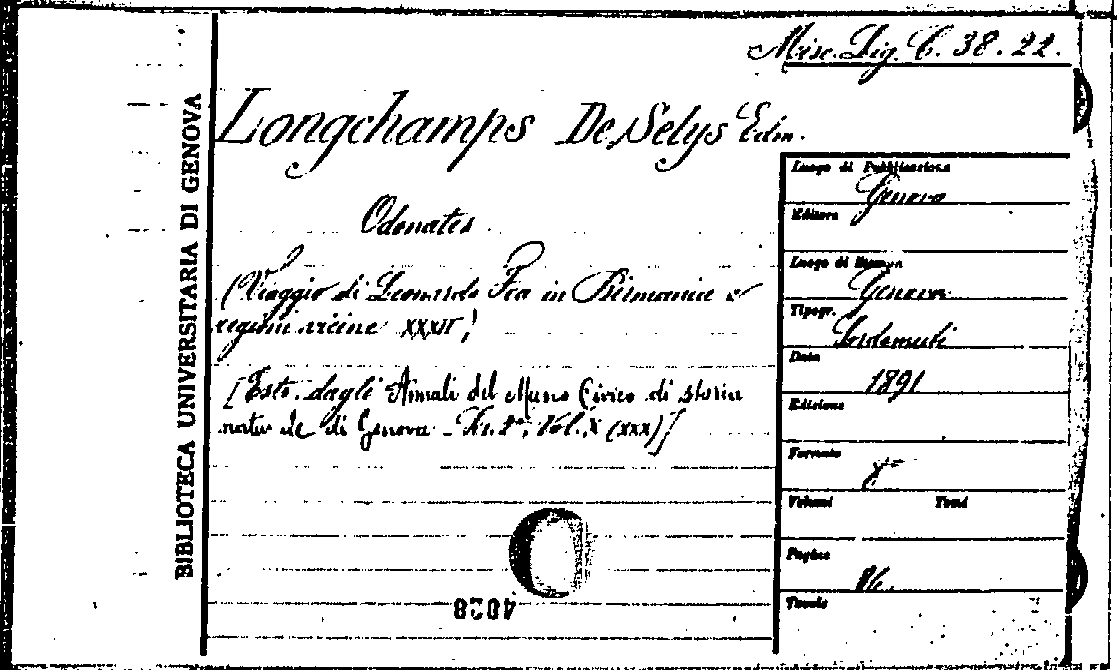 Misc. Lig. C. 38. 22.
BIBLIOTECA UNIVERSITARIA DI GENOVA
Longchamps De Selys Edm.
Odonates
(Viaggio di Leonardo Fea in Birmania e
regioni vicine XXXII)
[Estr. dagli Annali del Museo Civico di storia
naturale di Genova - Ser. 2ª, Vol. X (XXX)]
Luogo di Pubblicazione
Genova
Editore
Luogo di Stampa
Genova
Tipogr.
Sordomuti
Data
1891
Edizione
Formato
8°
Volumi Tomi
Pagine
Tavole
4028